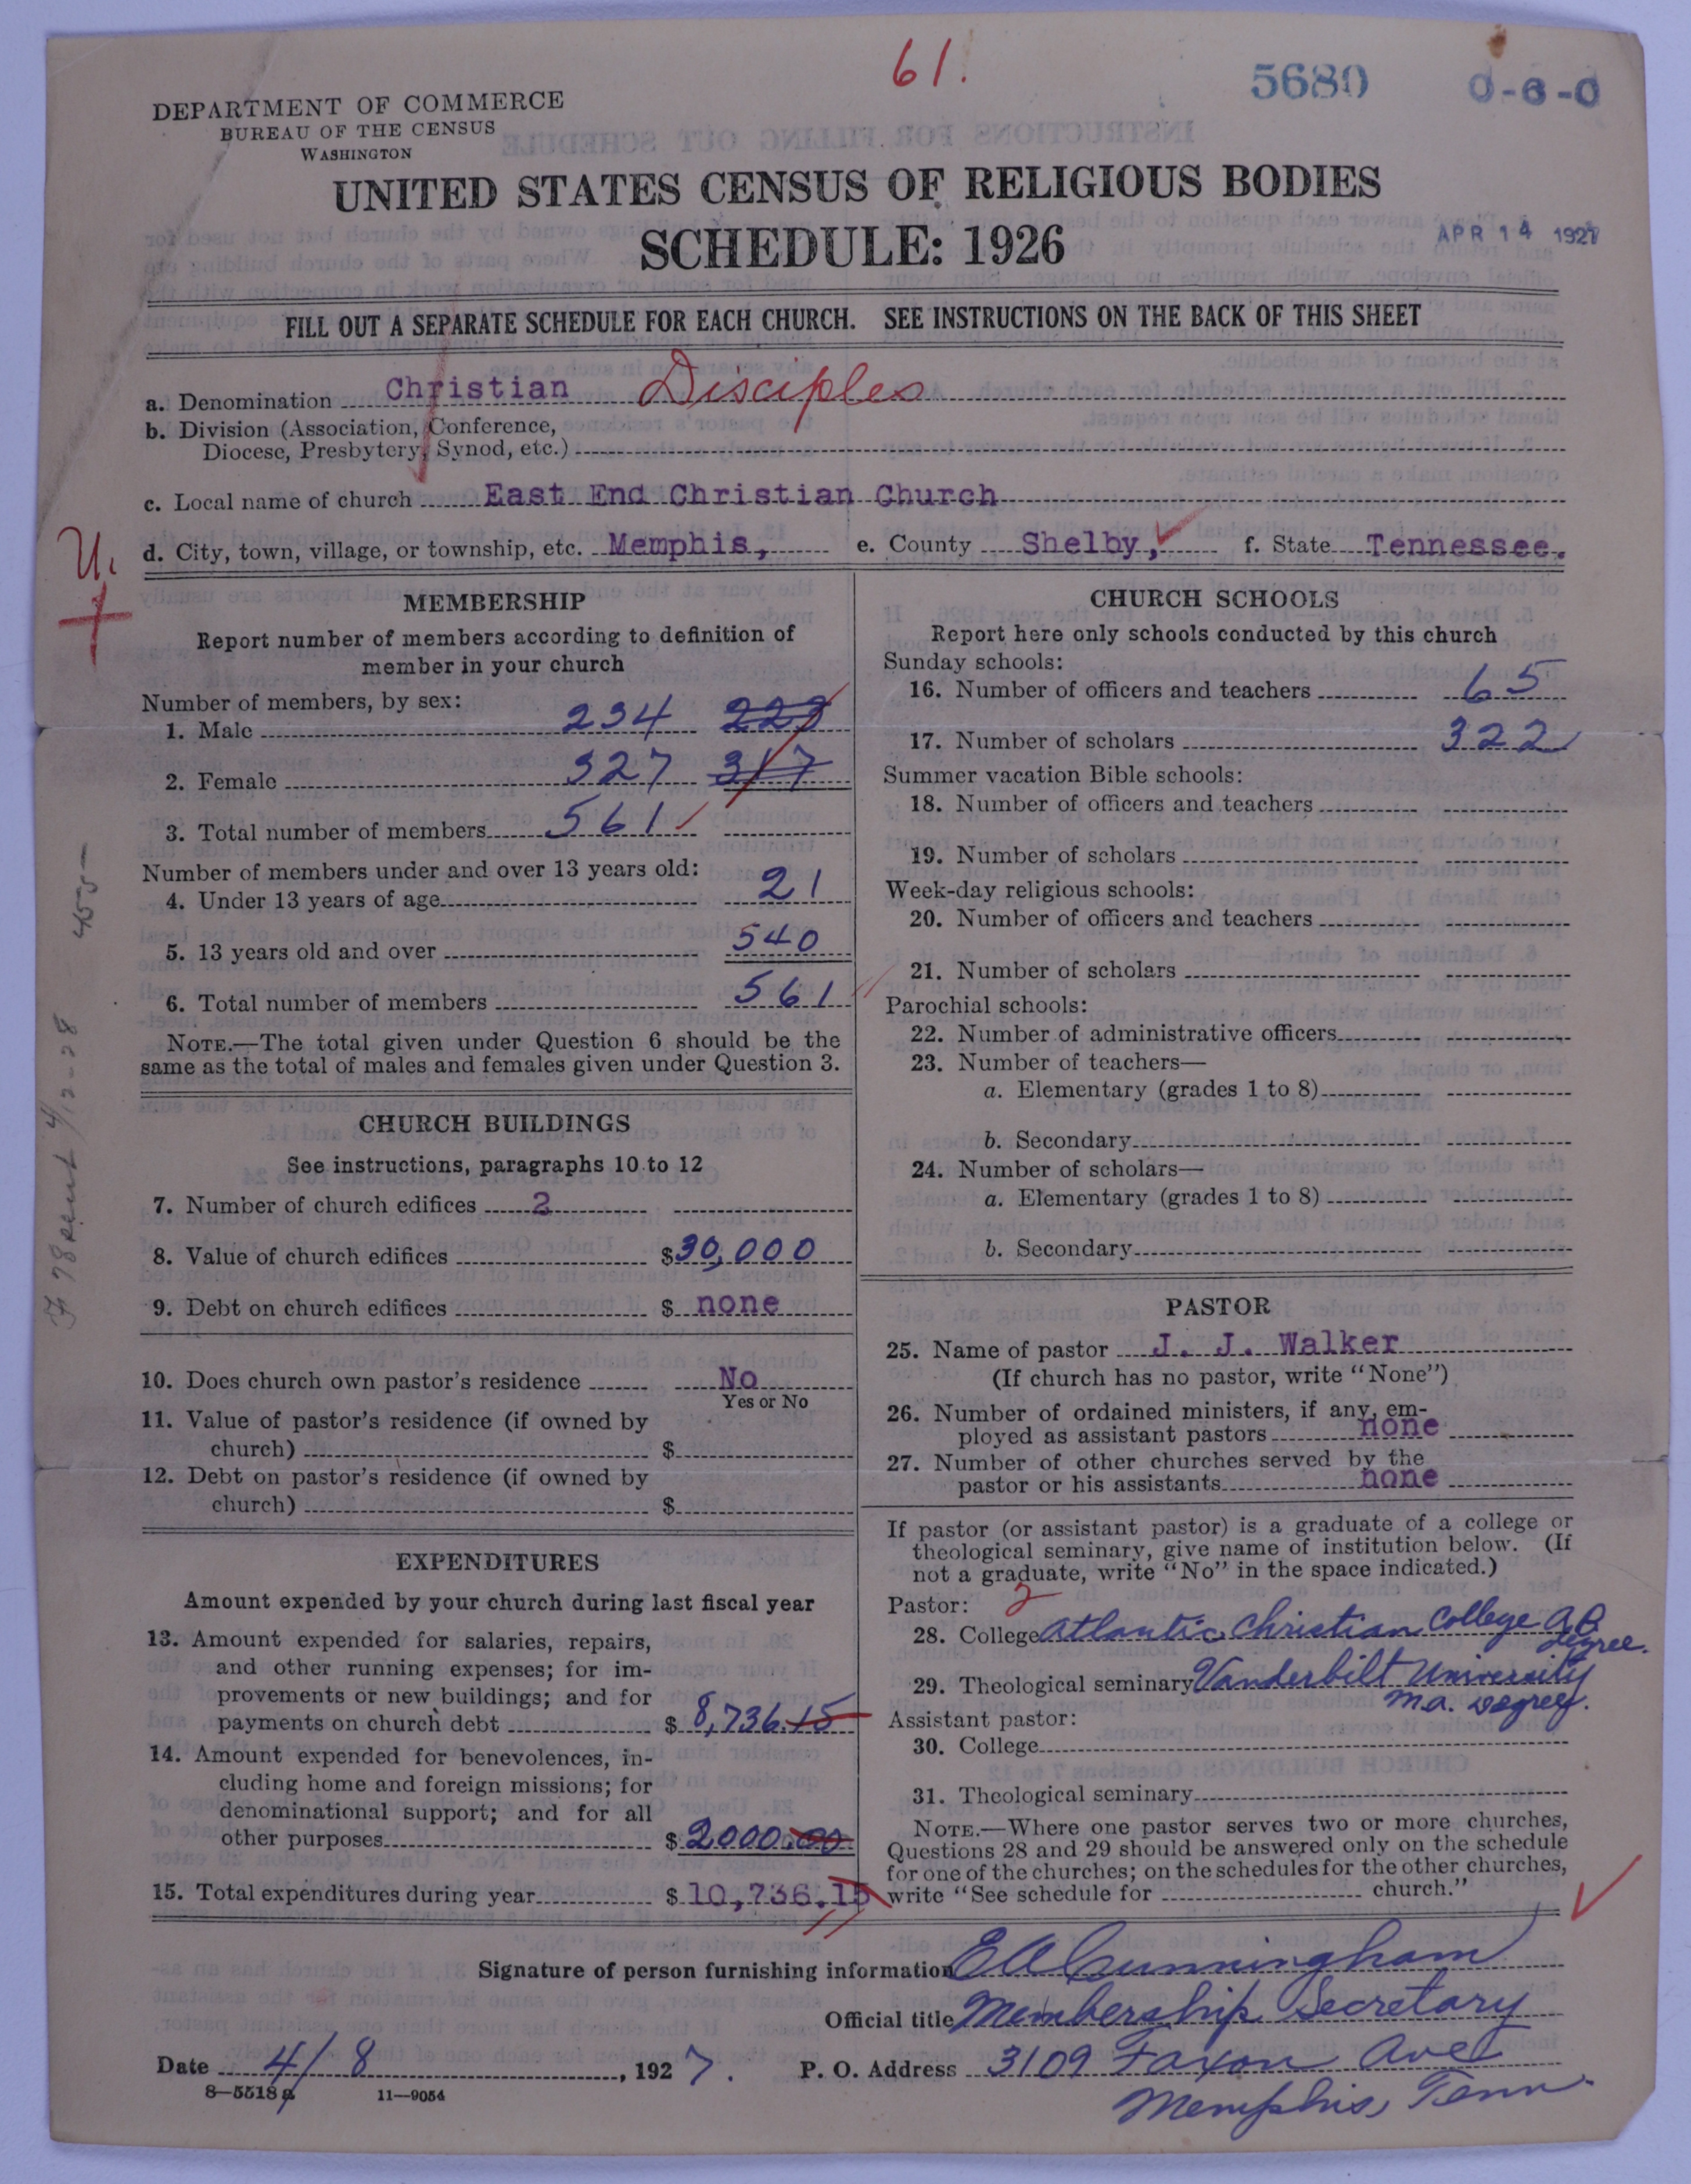 61.
5680
0-6-0
DEPARTMENT OF COMMERCE
BUREAU OF THE CENSUS
WASHINGTON
UNITED STATES CENSUS OF RELIGIOUS BODIES
SCHEDULE: 1926
APR 14 1927
FILL OUT A SEPARATE SCHEDULE FOR EACH CHURCH. SEE INSTRUCTIONS ON THE BACK OF THIS SHEET
a. Denomination Christian Disciples
b. Division (Association, Conference,
Diocese, Presbytery, Synod, etc.)
c. Local name of church East End Christian Church
U.
d. City, town, village, or township, etc. Memphis, e. County Shelby, f. State Tennessee.
MEMBERSHIP
Report number of members according to definition of
member in your church
Number of members, by sex:
1. Male 234 223
2. Female 327 317
3. Total number of members 561
Number of members under and over 13 years old:
4. Under 13 years of age 21
5. 13 years old and over 540
6. Total number of members 561
NOTE.—The total given under Question 6 should be the
same as the total of males and females given under Question 3.
CHURCH BUILDINGS
See instructions, paragraphs 10 to 12
7. Number of church edifices 2
8. Value of church edifices $30,000
9. Debt on church edifices $ none
10. Does church own pastor's residence No
Yes or No
11. Value of pastor's residence (if owned by
church) $
12. Debt on pastor's residence (if owned by
church) $
EXPENDITURES
Amount expended by your church during last fiscal year
13. Amount expended for salaries, repairs,
and other running expenses; for im-
provements or new buildings; and for
payments on church debt $ 8,736.15
14. Amount expended for benevolences, in-
cluding home and foreign missions; for
denominational support; and for all
other purposes $ 2000.00
15. Total expenditures during year $ 10,736.15
CHURCH SCHOOLS
Report here only schools conducted by this church
Sunday schools:
16. Number of officers and teachers 65
17. Number of scholars 322
Summer vacation Bible schools:
18. Number of officers and teachers
19. Number of scholars
Week-day religious schools:
20. Number of officers and teachers
21. Number of scholars
Parochial schools:
22. Number of administrative officers
23. Number of teachers—
a. Elementary (grades 1 to 8)
b. Secondary
24. Number of scholars—
a. Elementary (grades 1 to 8)
b. Secondary
PASTOR
25. Name of pastor J. J. Walker
(If church has no pastor, write "None")
26. Number of ordained ministers, if any, em-
ployed as assistant pastors none
27. Number of other churches served by the
pastor or his assistants none
If pastor (or assistant pastor) is a graduate of a college or
theological seminary, give name of institution below. (If
not a graduate, write "No" in the space indicated.)
Pastor: 2
28. College Atlantic Christian College AB
degree.
29. Theological seminary Vanderbilt University
M.A. Degree.
Assistant pastor:
30. College
31. Theological seminary
NOTE.—Where one pastor serves two or more churches,
Questions 28 and 29 should be answered only on the schedule
for one of the churches; on the schedules for the other churches,
write "See schedule for church."
Signature of person furnishing information E A Cunningham
Official title Membership Secretary
Date 4/8, 1927. P. O. Address 3109 Faxon Ave
Memphis, Tenn.
8—5518 a 11—9054